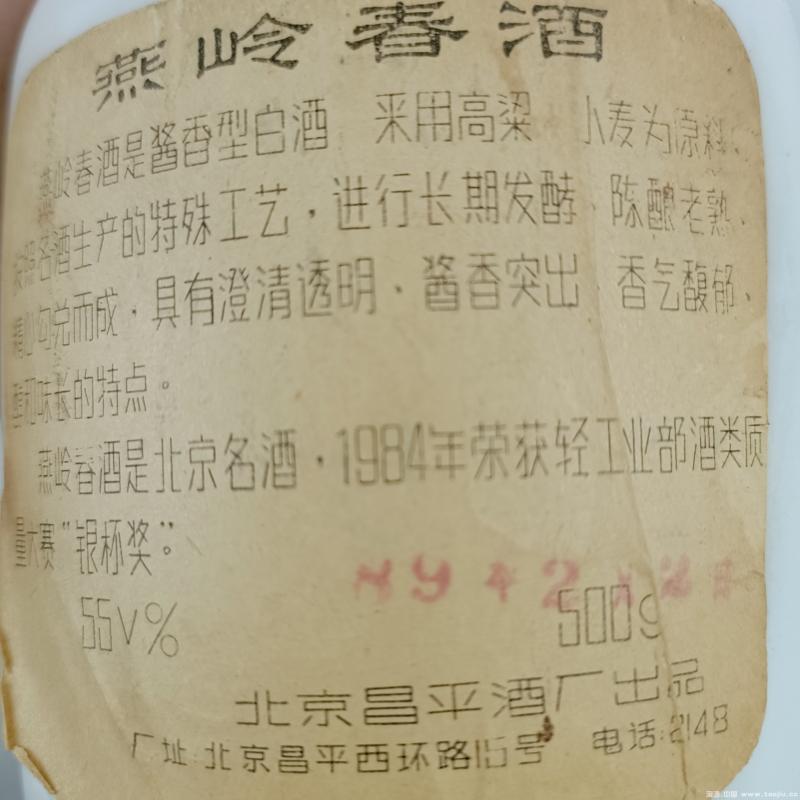 燕岭春酒
燕岭春酒是酱香型白酒 采用高粱 小麦为原料、
按照名酒生产的特殊工艺，进行长期发酵、陈酿老熟、
精心勾兑而成，具有澄清透明、酱香突出、香气馥郁、
醇和味长的特点。
燕岭春酒是北京名酒，1984年荣获轻工业部酒类质
量大赛“银杯奖”。
55V% 500g
北京昌平酒厂出品
厂址:北京昌平西环路15号 电话:2148
www.taojiu.cn